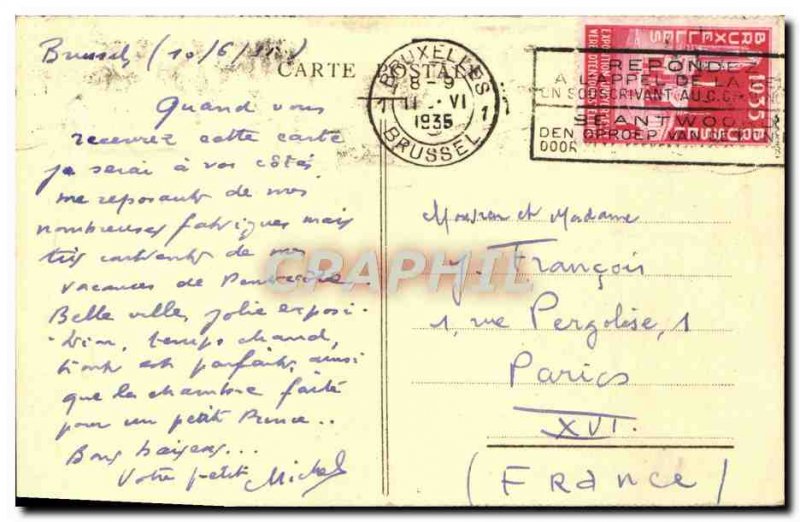 Brussel (10/6/35)
CARTE POSTALE
Quand vous
recevrez cette carte
je serai à vos côtés
me reposant de mes
nombreuses fatigues mais
très content de mes
vacances de Pentecôte
Belle ville, jolie exposi-
-tion, temps chaud,
tout est parfait, ainsi
que la chambre faite
pour un petit Prince..
Bons baisers...
Votre petit Michel
BRUXELLES
8-9
1 11 VI 1
1935
BRUSSEL
REPONDE
A L'APPEL DE LA
EN SOUSCRIVANT AU C.G.
BEANTWOO
DEN OPROEP VAN
DOOR
BRUXELLES
1935
BRUSSEL
Monsieur et Madame
J. François
1, rue Pergolèse, 1
Paris
XVI
(France)
CPAPHIL